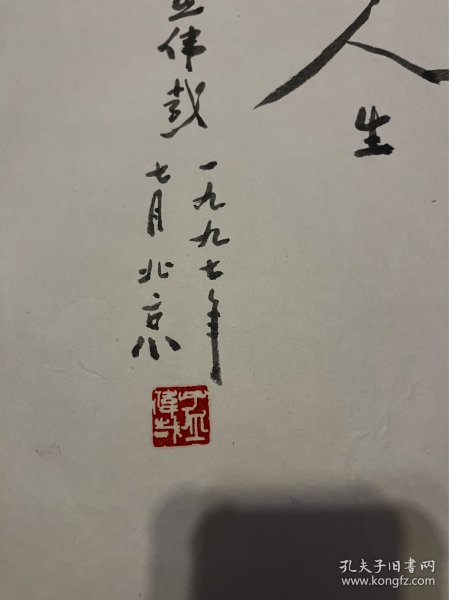 人生
伟哉
一九九七年
七月北京
孟偉哉
孔夫子旧书网
www.kongfz.com